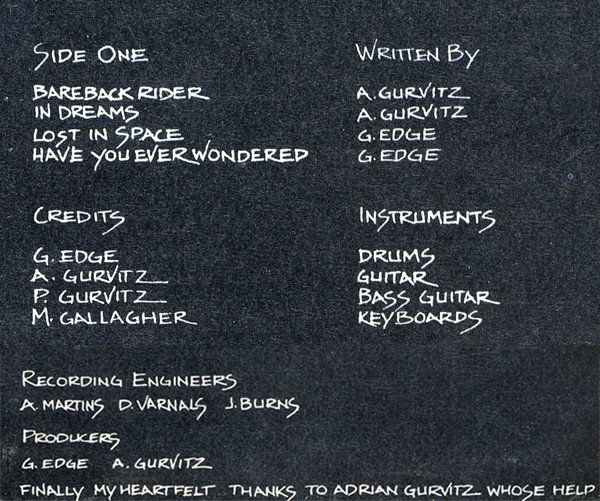 SIDE ONE
WRITTEN BY
BAREBACK RIDER
A. GURVITZ
IN DREAMS
A. GURVITZ
LOST IN SPACE
G. EDGE
HAVE YOU EVER WONDERED
G. EDGE
CREDITS
INSTRUMENTS
G. EDGE
DRUMS
A. GURVITZ
GUITAR
P. GURVITZ
BASS GUITAR
M. GALLAGHER
KEYBOARDS
RECORDING ENGINEERS
A. MARTINS D. VARNALS J. BURNS
PRODUCERS
G. EDGE A. GURVITZ
FINALLY MY HEARTFELT THANKS TO ADRIAN GURVITZ WHOSE HELP